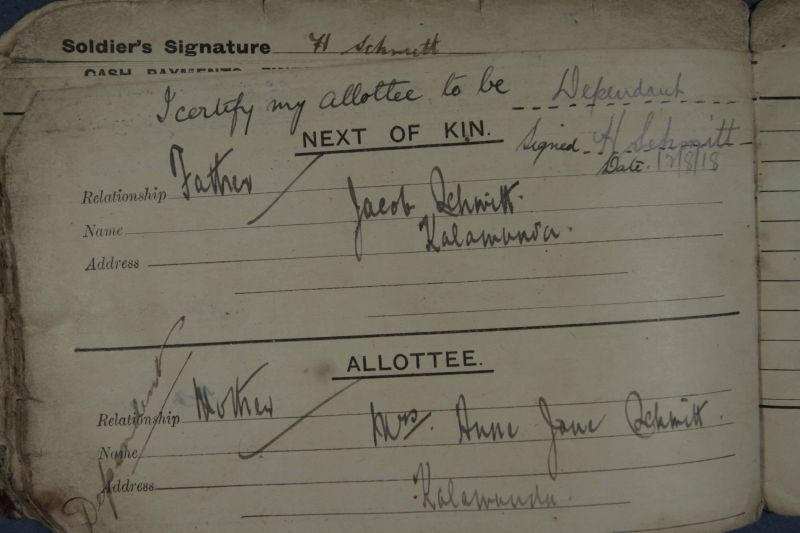 Soldier's Signature H Schmitt
CASH PAYMENTS
I certify my allottee to be Dependant
NEXT OF KIN.
Signed H Schmitt
Date 12/8/18
Relationship Father
Name Jacob Schmitt.
Address Kalamunda.
ALLOTTEE.
Relationship Mother
Name Mrs. Anne Jane Schmitt.
Address Kalamunda.
Dependant